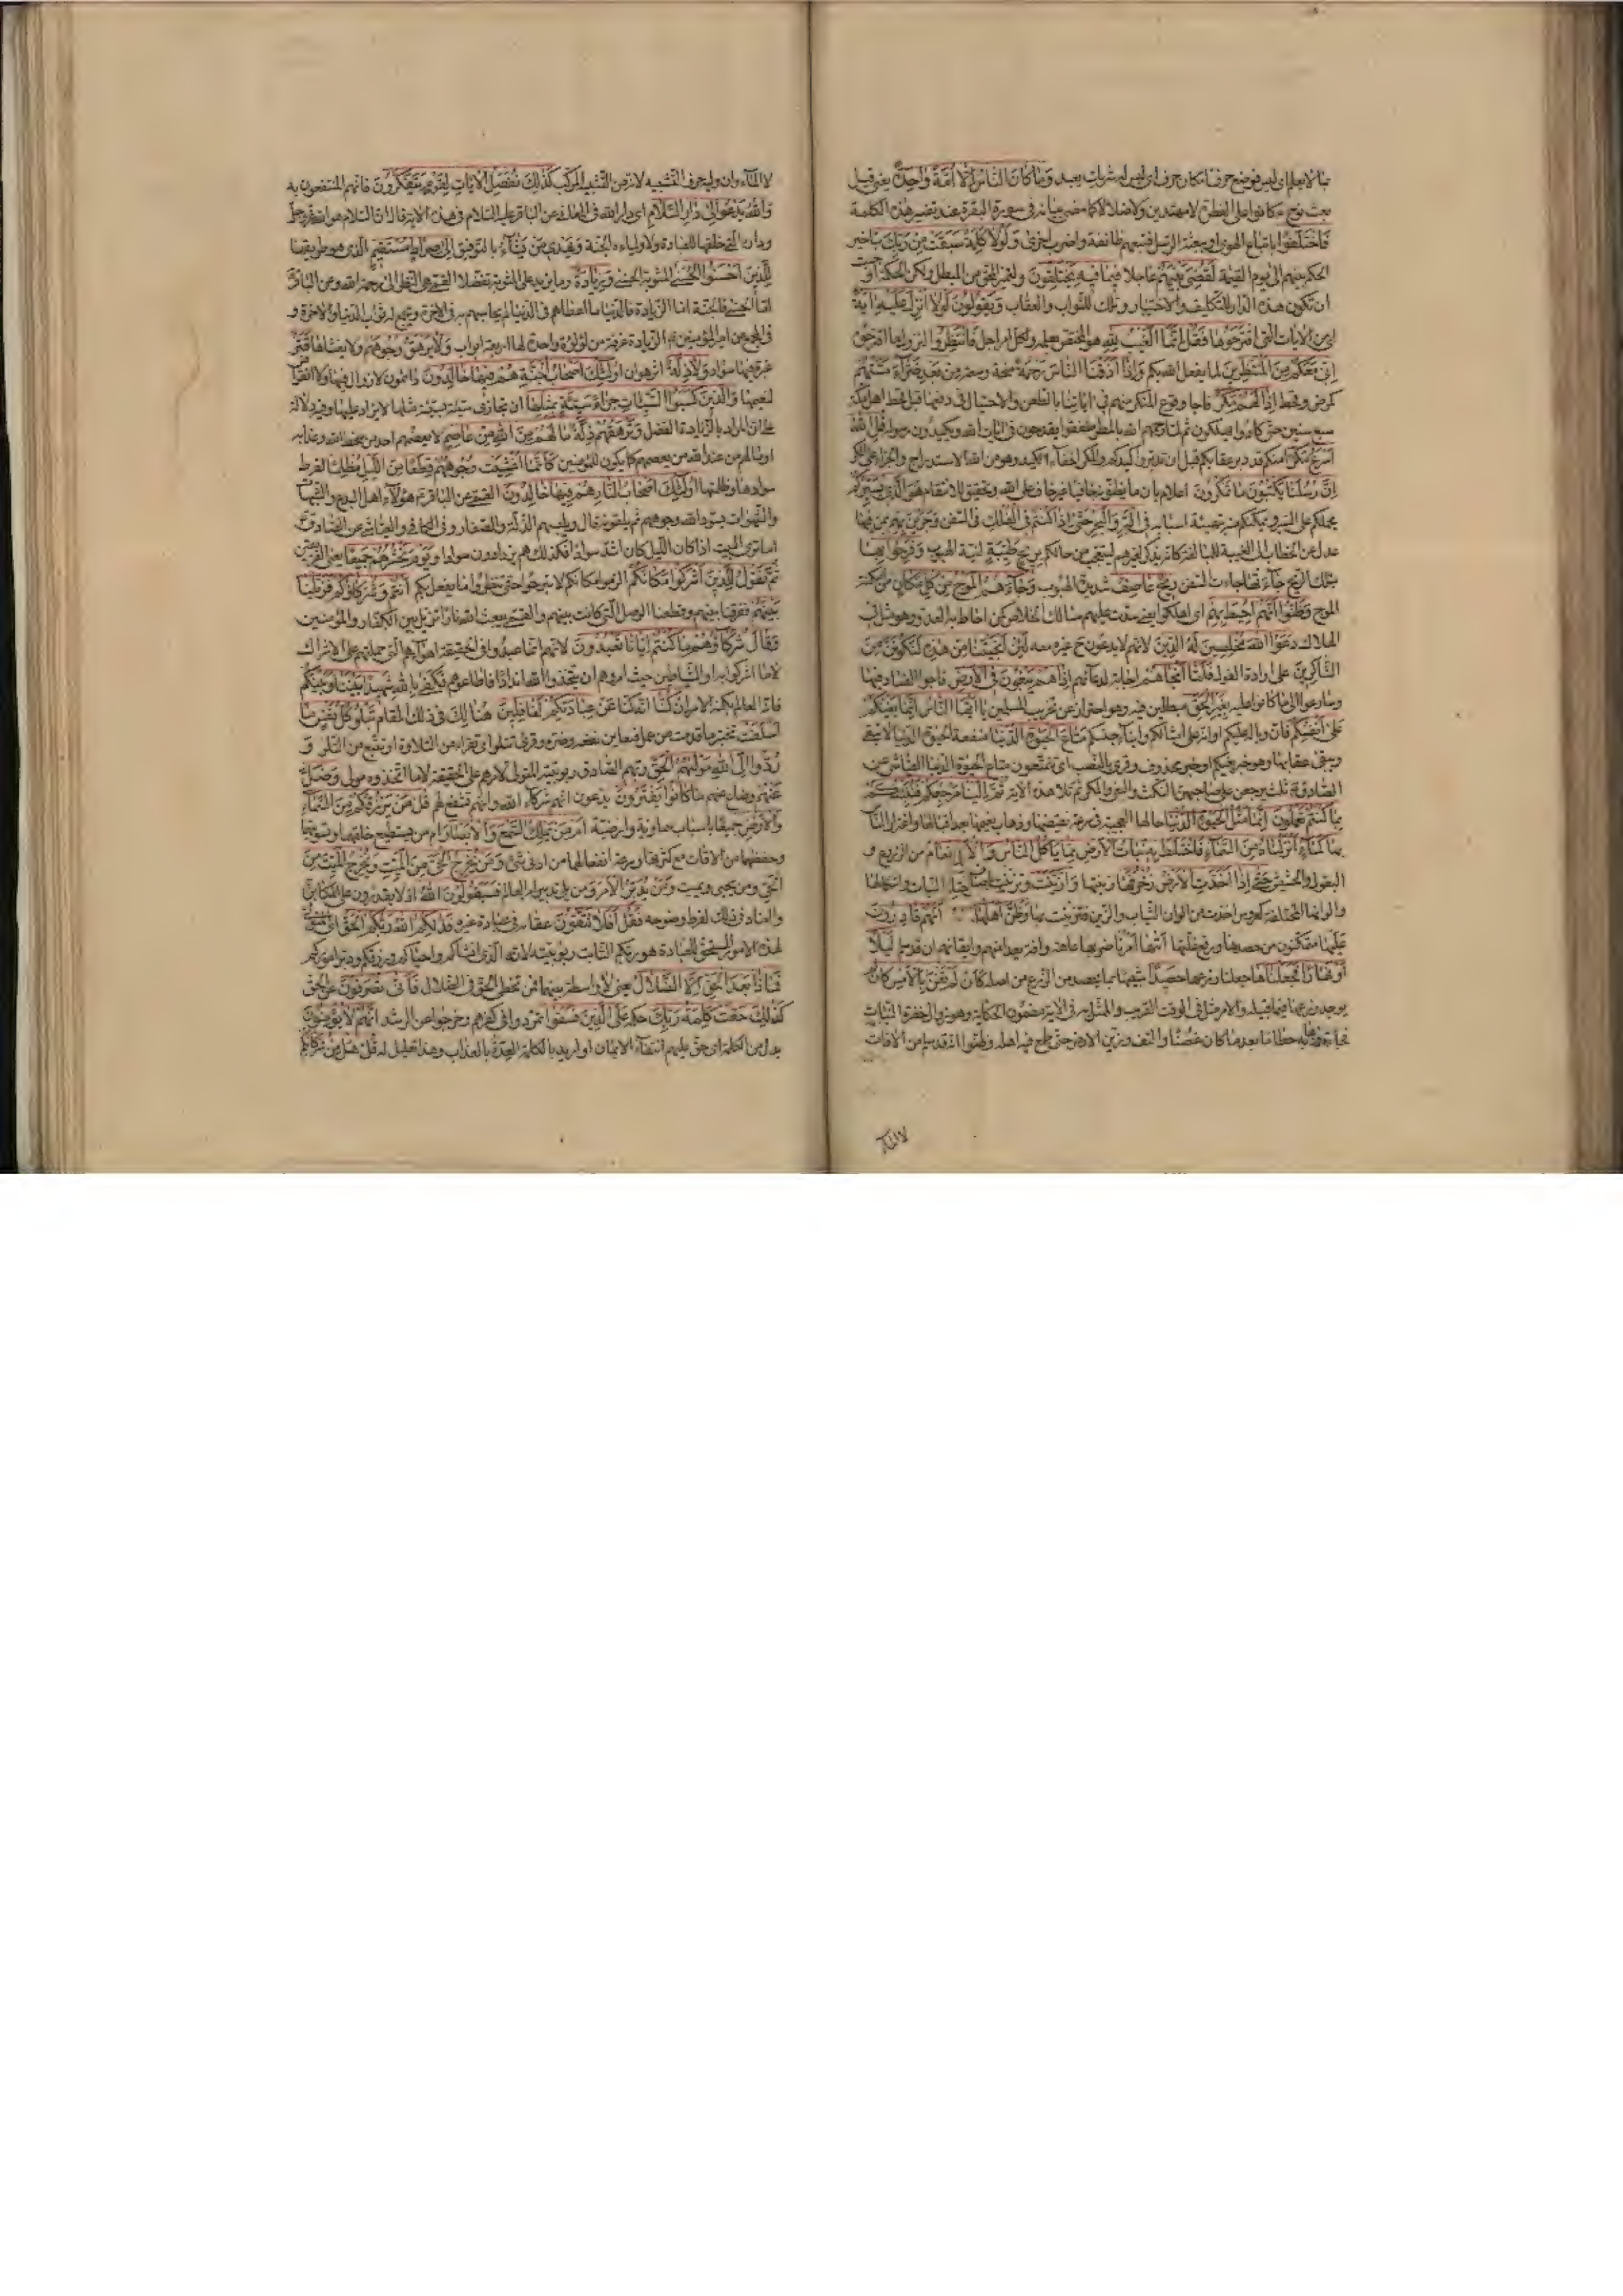 بما لا يعلم اى ليس فوضع حرفا مكان حرف اى ليس له شريك يعبد وَمَا كَانَ النَّاسُ اِلَّا اُمَّةً وَاحِدَةً يعنى قبل
بعث نوح كانوا على الفطرة لا مهتدين ولا ضلالا كما مضى بيانه فى سورة البقرة عند تفسير هذه الكلمة
فَاخْتَلَفُوا باتباع الهوى او ببعثة الرسل فتبعهم طائفة واصرت اخرى وَلَوْلَا كَلِمَةٌ سَبَقَتْ مِنْ رَبِّكَ بتاخير
الحكم بينهم الى يوم القيمة لَقُضِىَ بَيْنَهُمْ عاجلا فِيمَا فِيهِ يَخْتَلِفُونَ ولتميز المحق من المبطل ولكن الحكمة اوجبت
ان تكون هذه الدار للتكليف والاختبار وتلك للثواب والعقاب وَيَقُولُونَ لَوْلَا اُنْزِلَ عَلَيْهِ اٰيَةٌ
اى من الايات التى اقترحوها فَقُلْ اِنَّمَا الْغَيْبُ لِلّٰهِ هو المختص بعلمه ولكل امر اجل فَانْتَظِرُوا لنزول ما اقترحتموه
اِنِّى مَعَكُمْ مِنَ الْمُنْتَظِرِينَ لما يفعل الله بكم وَاِذَا اَذَقْنَا النَّاسَ رَحْمَةً صحة وسعة مِنْ بَعْدِ ضَرَّاءَ مَسَّتْهُمْ
كمرض وقحط اِذَا لَهُمْ مَكْرٌ فاجا وقوع المكر منهم فِى اٰيَاتِنَا بالطعن والاحتيال فى دفعها قيل قحط اهل مكة
سبع سنين حتى كادوا يهلكون ثم لما رحمهم الله بالمطر طفقوا يقدحون فى ايات الله ويكيدون رسوله قُلِ اللّٰهُ
اَسْرَعُ مَكْرًا منكم قد دبر عقابكم قبل ان تدبروا كيدكم والمكر اخفاء الكيد وهو من الله الاستدراج والجزاء على المكر
اِنَّ رُسُلَنَا يَكْتُبُونَ مَا تَمْكُرُونَ اعلام بان ما يظنونه خافيا غير خاف على الله وتحقيق للانتقام هُوَ الَّذِى يُسَيِّرُكُمْ
يحملكم على السير ويمكنكم منه بتهيئة اسبابه فِى الْبَرِّ وَالْبَحْرِ حَتّٰى اِذَا كُنْتُمْ فِى الْفُلْكِ فى السفن وَجَرَيْنَ بِهِمْ بمن فيها
عدل عن الخطاب الى الغيبة للمبالغة كانه يذكر لغيرهم ليتعجب من حالهم بِرِيحٍ طَيِّبَةٍ لينة الهبوب وَفَرِحُوا بِهَا
بتلك الريح جَاءَتْهَا جاءت السفن رِيحٌ عَاصِفٌ شديدة الهبوب وَجَاءَهُمُ الْمَوْجُ مِنْ كُلِّ مَكَانٍ من امكنة
الموج وَظَنُّوا اَنَّهُمْ اُحِيطَ بِهِمْ اى اهلكوا يعنى سدت عليهم مسالك الخلاص كمن احاط به العدو وهو مثل فى
الهلاك دَعَوُا اللّٰهَ مُخْلِصِينَ لَهُ الدِّينَ لانهم لا يدعون ح غيره معه لَئِنْ اَنْجَيْتَنَا مِنْ هٰذِهِ لَنَكُونَنَّ مِنَ
الشَّاكِرِينَ على ارادة القول فَلَمَّا اَنْجَاهُمْ اجابة لدعائهم اِذَا هُمْ يَبْغُونَ فِى الْاَرْضِ فاجوا الفساد فيها
وسارعوا الى ما كانوا عليه بِغَيْرِ الْحَقِّ مبطلين فيه وهو احتراز عن تخريب المسلمين يَا اَيُّهَا النَّاسُ اِنَّمَا بَغْيُكُمْ
عَلٰى اَنْفُسِكُمْ فان وباله عليكم او انه على امثالكم وابناء جنسكم مَتَاعَ الْحَيٰوةِ الدُّنْيَا منفعة الحيوة الدنيا لا تبقى
ويبقى عقابها وهو خبر بغيكم او خبر محذوف وقرئ بالنصب اى تتمتعون متاع الحيوة الدنيا القمى عن
الصادق ثلث يرجعن على صاحبهن النكث والبغى والمكر ثم تلا هذه الاية ثُمَّ اِلَيْنَا مَرْجِعُكُمْ فَنُنَبِّئُكُمْ
بِمَا كُنْتُمْ تَعْمَلُونَ اِنَّمَا مَثَلُ الْحَيٰوةِ الدُّنْيَا حالها العجيبة فى سرعة تقضيها وذهاب نعيمها بعد اقبالها واغترار الناس
بها كَمَاءٍ اَنْزَلْنَاهُ مِنَ السَّمَاءِ فَاخْتَلَطَ بِهِ نَبَاتُ الْاَرْضِ مِمَّا يَأْكُلُ النَّاسُ وَالْاَنْعَامُ من الزروع و
البقول والحشيش حَتّٰى اِذَا اَخَذَتِ الْاَرْضُ زُخْرُفَهَا زينتها وَازَّيَّنَتْ وتزينت باصناف النبات واشكالها
والوانها المختلفة كعروس اخذت من الوان الثياب والزين فتزينت بها وَظَنَّ اَهْلُهَا اَنَّهُمْ قَادِرُونَ
عَلَيْهَا متمكنون من حصدها ورفع غلتها اَتٰيهَا اَمْرُنَا ضربها عاهة وافة بعد امنهم وايقانهم ان قد سلم لَيْلًا
اَوْ نَهَارًا فَجَعَلْنَاهَا جعلنا زرعها حَصِيدًا شبيها بما يحصد من الزرع من اصله كَاَنْ لَمْ تَغْنَ بِالْاَمْسِ كان لم
يوجد زرعها فيما قبيله والامس مثل فى الوقت القريب والممثل به فى الاية مضمون الحكاية وهو زوال خضرة النبات
فجاة وذهابه حطاما بعد ما كان غضا والتف وزين الارض حتى طمع فيه اهله وظنوا انه قد سلم من الافات
لا الماء
لا الماء وان وليه حرف التشبيه لانه من التشبيه المركب كَذٰلِكَ نُفَصِّلُ الْاٰيَاتِ لِقَوْمٍ يَتَفَكَّرُونَ فانهم المنتفعون به
وَاللّٰهُ يَدْعُو اِلٰى دَارِ السَّلَامِ اى دار الله فى المعانى عن الباقر عليه السلام فى هذه الاية قال ان السلام هو الله عز وجل
وداره التى خلقها لعباده ولاوليائه الجنة وَيَهْدِى مَنْ يَشَاءُ بالتوفيق اِلٰى صِرَاطٍ مُسْتَقِيمٍ الذى هو طريقها
لِلَّذِينَ اَحْسَنُوا الْحُسْنٰى المثوبة الحسنى وَزِيَادَةٌ وما يزيد على المثوبة تفضلا القمى هى النظر الى رحمة الله وعن الباقر
اما الحسنى فالجنة اما الزيادة فالدنيا ما اعطاهم فى الدنيا لم يحاسبهم به فى الاخرة ويجمع لهم ثواب الدنيا والاخرة و
فى المجمع عن امير المؤمنين الزيادة غرفة من لؤلؤة واحدة لها اربعة ابواب وَلَا يَرْهَقُ وُجُوهَهُمْ ولا يغشاها قَتَرٌ
غبرة فيها سواد وَلَا ذِلَّةٌ اثر هوان اُولٰئِكَ اَصْحَابُ الْجَنَّةِ هُمْ فِيهَا خَالِدُونَ دائمون لا زوال فيها ولا انقراض
لنعيمها وَالَّذِينَ كَسَبُوا السَّيِّئَاتِ جَزَاءُ سَيِّئَةٍ بِمِثْلِهَا ان تجازى سيئة بسيئة مثلها لا يزاد عليها وفيه دلالة
على ان المراد بالزيادة الفضل وَتَرْهَقُهُمْ ذِلَّةٌ مَا لَهُمْ مِنَ اللّٰهِ مِنْ عَاصِمٍ لا يعصمهم احد من سخط الله وعذابه
او ما لهم من عند الله من يعصمهم كما يكون للمؤمنين كَاَنَّمَا اُغْشِيَتْ وُجُوهُهُمْ قِطَعًا مِنَ اللَّيْلِ مُظْلِمًا لفرط
سوادها وظلمتها اُولٰئِكَ اَصْحَابُ النَّارِ هُمْ فِيهَا خَالِدُونَ القمى عن الباقر هؤلاء اهل البدع والشبهات
والشهوات يسود الله وجوههم ثم يلقونه قال ويلبسهم الذلة والصغار وفى الكافى والعياشى عن الصادق
اما ترى البيت اذا كان الليل كان اشد سوادا فكذلك هم يزدادون سوادا وَيَوْمَ نَحْشُرُهُمْ جَمِيعًا يعنى الفريقين
ثُمَّ نَقُولُ لِلَّذِينَ اَشْرَكُوا مَكَانَكُمْ الزموا مكانكم لا تبرحوا حتى تنظروا ما يفعل بكم اَنْتُمْ وَشُرَكَاؤُكُمْ فَزَيَّلْنَا
بَيْنَهُمْ ففرقنا بينهم وقطعنا الوصل التى كانت بينهم والقمى يبعث الله نارا تزيل بين الكفار والمؤمنين
وَقَالَ شُرَكَاؤُهُمْ مَا كُنْتُمْ اِيَّانَا تَعْبُدُونَ لانهم انما عبدوا فى الحقيقة اهواءهم التى حملتهم على الاشراك
لا ما اشركوا به او الشياطين حيث امروهم ان يتخذوا لله اندادا فاطاعوهم فَكَفٰى بِاللّٰهِ شَهِيدًا بَيْنَنَا وَبَيْنَكُمْ
فانه العالم بكنه الامر اِنْ كُنَّا انه كنا عَنْ عِبَادَتِكُمْ لَغَافِلِينَ هُنَالِكَ فى ذلك المقام تَبْلُوا كُلُّ نَفْسٍ مَا
اَسْلَفَتْ تختبر ما قدمت من عمل فتعاين نفعه وضره وقرئ تتلوا اى تقراء من التلاوة او تتبع من التلو وَ
رُدُّوا اِلَى اللّٰهِ مَوْلٰيهُمُ الْحَقِّ ربهم الصادق ربوبيته المتولى لامرهم على الحقيقة لا ما اتخذوه مولى وَضَلَّ
عَنْهُمْ وضاع عنهم مَا كَانُوا يَفْتَرُونَ يدعون انهم شركاء الله وانهم تشفع لهم قُلْ مَنْ يَرْزُقُكُمْ مِنَ السَّمَاءِ
وَالْاَرْضِ جميعا باسباب سماوية وارضية اَمَّنْ يَمْلِكُ السَّمْعَ وَالْاَبْصَارَ ام من يستطيع خلقهما وتسويتهما
وحفظهما من الافات مع كثرتها وسرعة انفعالهما من ادنى شئ وَمَنْ يُخْرِجُ الْحَىَّ مِنَ الْمَيِّتِ وَيُخْرِجُ الْمَيِّتَ مِنَ
الْحَىِّ ومن يحيى ويميت وَمَنْ يُدَبِّرُ الْاَمْرَ ومن يلى تدبير امر العالم فَسَيَقُولُونَ اللّٰهُ اذ لا يقدرون على المكابرة
والعناد فى ذلك لفرط وضوحه فَقُلْ اَفَلَا تَتَّقُونَ عقابه فى عبادة غيره فَذٰلِكُمُ اللّٰهُ رَبُّكُمُ الْحَقُّ اى المتولى
لهذه الامور المستحق للعبادة هو ربكم الثابت ربوبيته لانه الذى انشاكم واحياكم ورزقكم ودبر اموركم
فَمَاذَا بَعْدَ الْحَقِّ اِلَّا الضَّلَالُ يعنى لا واسطة بينهما فمن تخطى الحق وقع فى الضلال فَاَنّٰى تُصْرَفُونَ عن الحق
كَذٰلِكَ حَقَّتْ كَلِمَةُ رَبِّكَ حكمه عَلَى الَّذِينَ فَسَقُوا تمردوا فى كفرهم وخرجوا عن الرشد اَنَّهُمْ لَا يُؤْمِنُونَ
بدل من الكلمة اى حق عليهم انتفاء الايمان او اريد بالكلمة العدة بالعذاب وهذا تعليل له قُلْ هَلْ مِنْ شُرَكَائِكُمْ